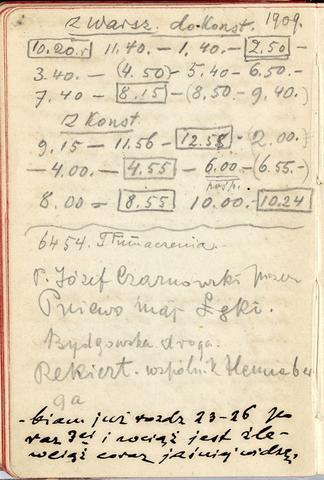 z Warsz. do Konst. 1909.
10.20.r 11.40. — 1.40. — 2.50 —
3.40. — (4.50) — 5.40 — 6.50. —
7.40 — 8.15 — (8.50 — 9.40.)
z Konst
9.15 — 11.56 — 12.58 — (2.00.)
— 4.00. — 4.55 — 6.00 — (6.55. —)
8.00 — 8.55 10.00. — 10.24
6454. Tłumaczenia.
p. Józef Czarnowski przez
Pniewo maj Łęki.
Bydgowska droga.
Rekiert. wspólnik
- biam już rozdz 23-26 po
raz 3ci i wciąż jest źle -
wciąż coraz jaśniej widzę,